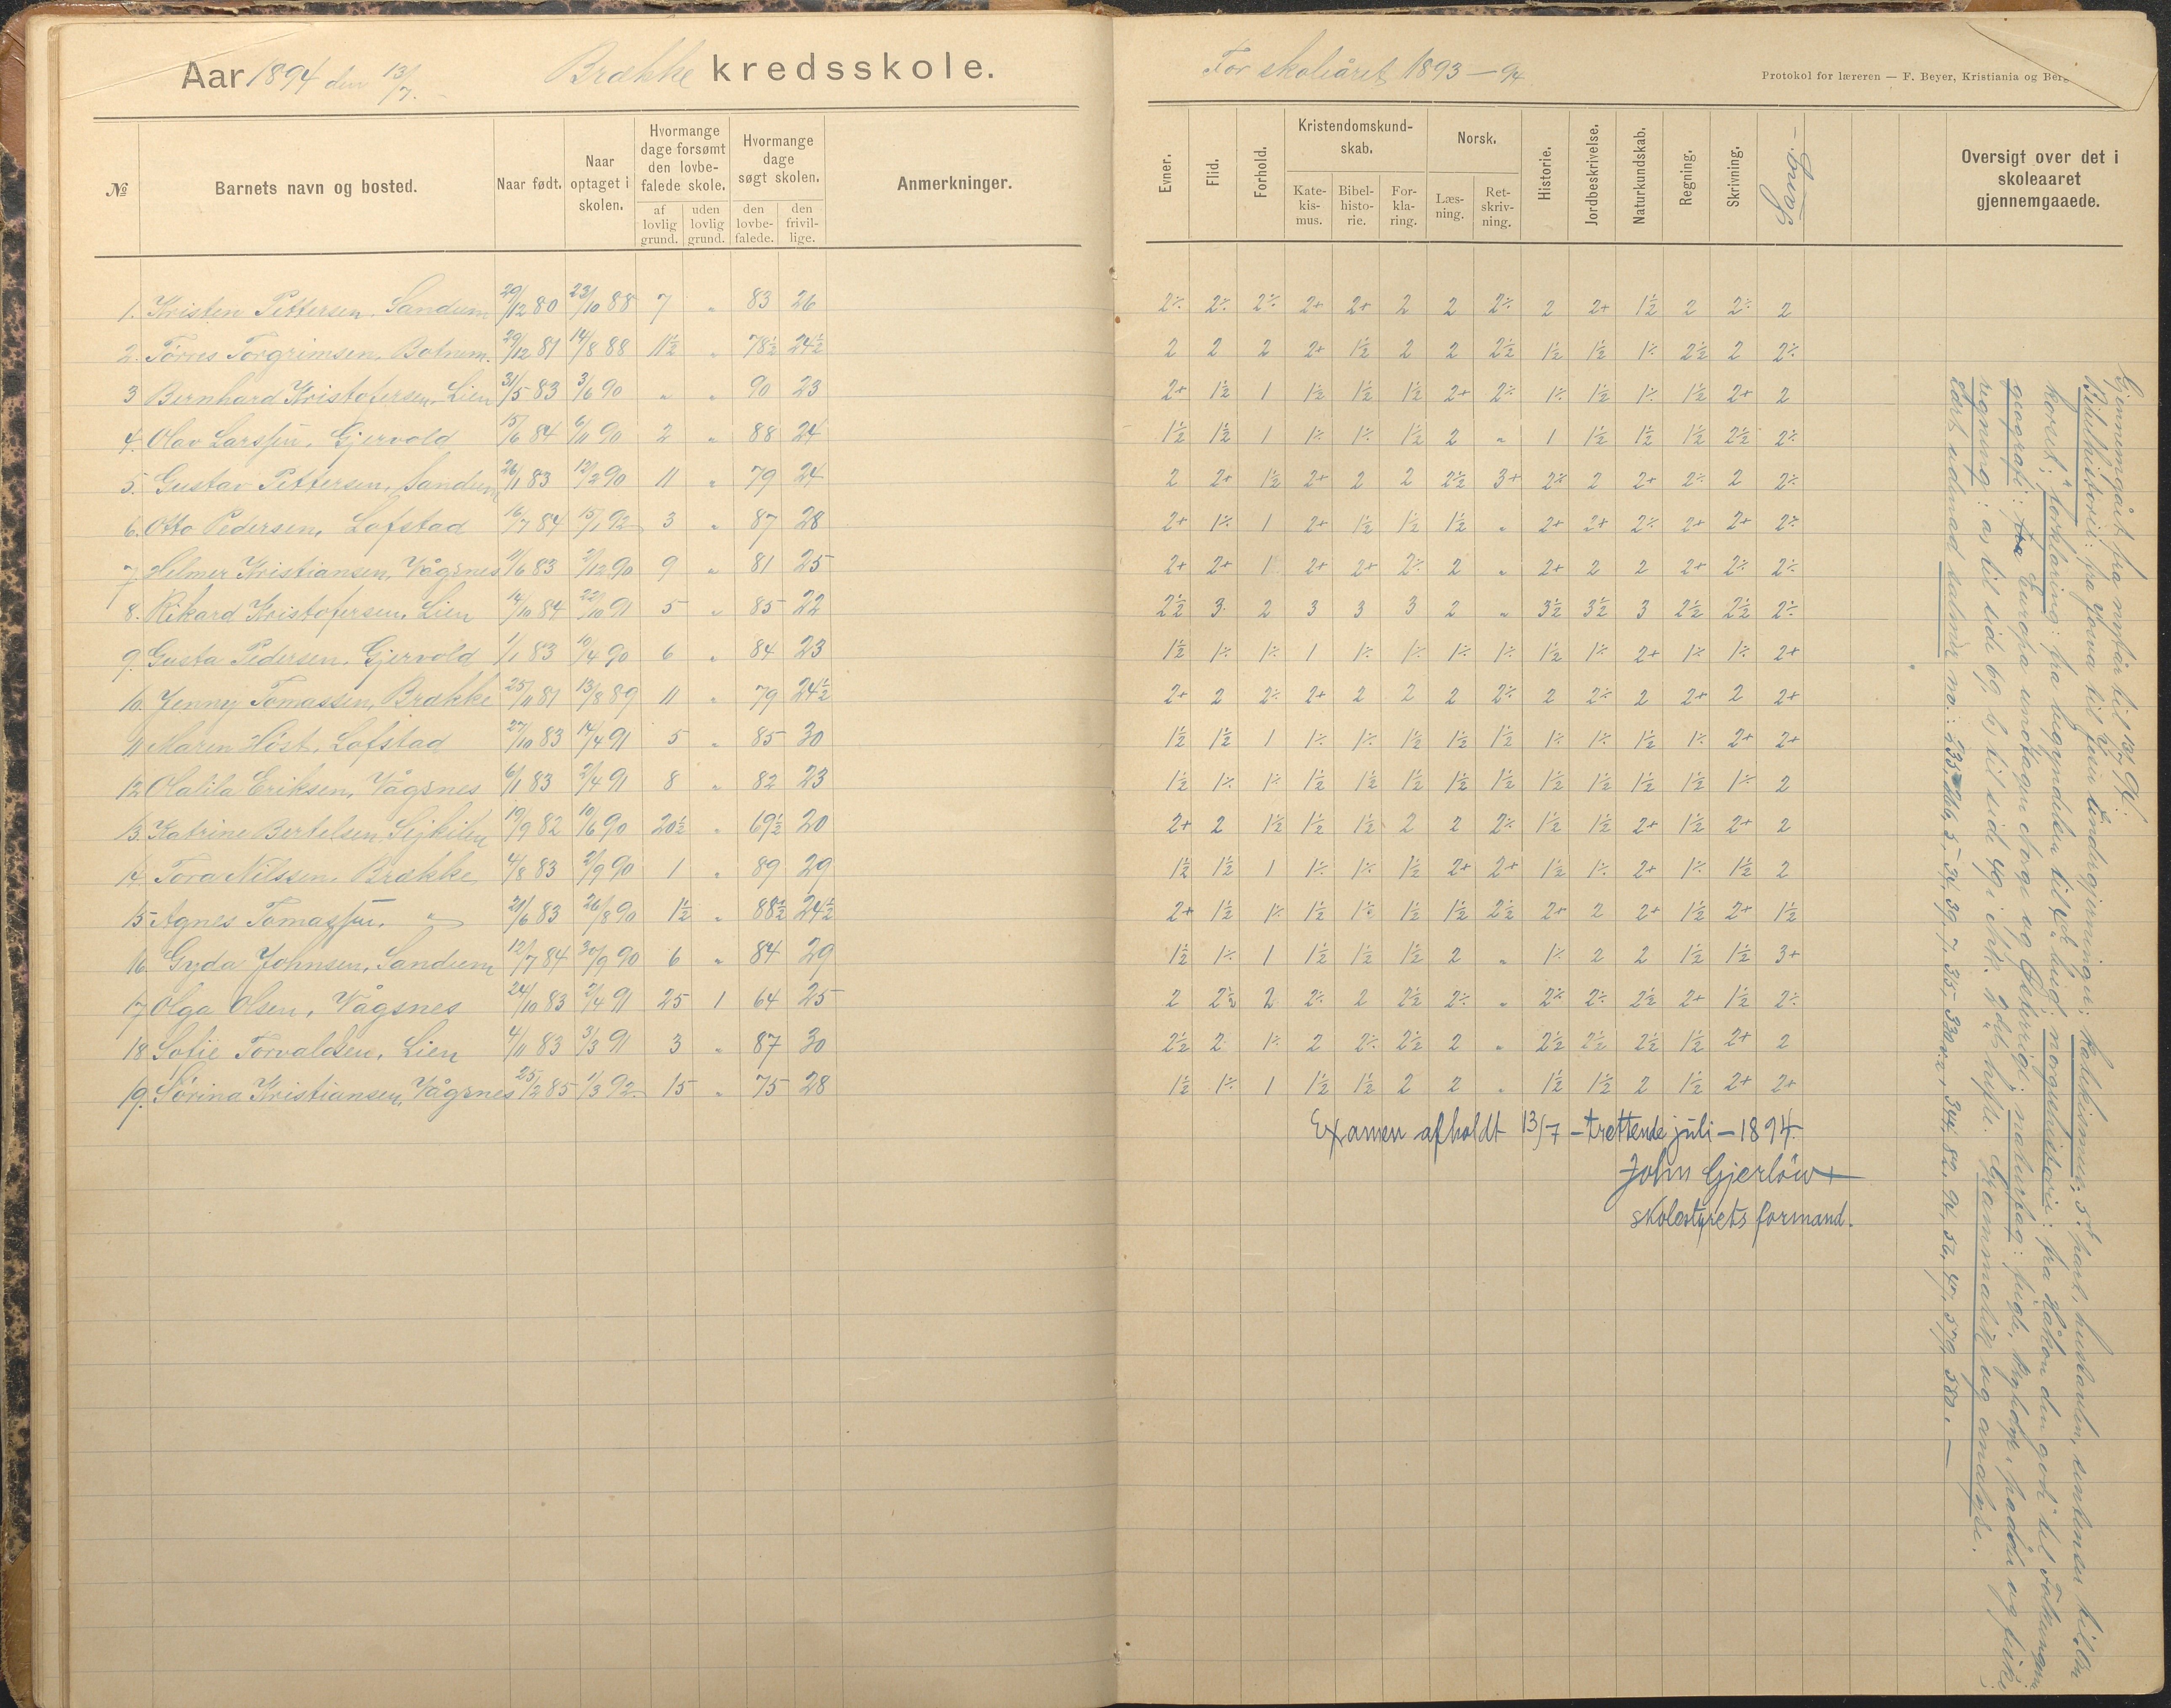 Aar 1894 den 13/7. Brække kredsskole.
For skoleåret 1893–94
Protokol for læreren — F. Beyer, Kristiania og Berg
№ | Barnets navn og bosted. | Naar født. | Naar optaget i skolen. | Hvormange dage forsømt den lovbefalede skole. af lovlig grund. | uden lovlig grund. | Hvormange dage søgt skolen. den lovbefalede. | den frivillige. | Anmerkninger.
Evner. | Flid. | Forhold. | Kristendomskundskab. Katekismus. | Bibelhistorie. | Forklaring. | Norsk. Læsning. | Retskrivning. | Historie. | Jordbeskrivelse. | Naturkundskab. | Regning. | Skrivning. | Sang. | Oversigt over det i skoleaaret gjennemgaaede.
1. Kristen Pettersen, Sandum 29/12 80 23/10 88 7 „ 83 26 2÷ 2÷ 2÷ 2+ 2+ 2 2 2÷ 2 2+ 1½ 2 2÷ 2
2. Torgrimsen, Botnum. 29/12 81 14/8 88 11½ „ 78½ 24½ 2 2 2 2+ 1½ 2 2 2½ 1½ 1½ 1÷ 2½ 2 2÷
3 Bernhard Kristofersen, Lien 31/5 83 3/6 90 „ „ 90 23 2+ 1½ 1 1½ 1½ 1½ 2+ 2÷ 1÷ 1½ 1÷ 1½ 2+ 2
4. Olav Larssen, Gjervold 15/6 84 6/11 90 2 „ 88 24 1½ 1½ 1 1÷ 1÷ 1½ 2 „ 1 1½ 1½ 1½ 2½ 2÷
5. Gustav Pettersen, Sandum 26/1 83 12/2 90 11 „ 79 24 2 2+ 1½ 2+ 2 2 2½ 3+ 2÷ 2 2+ 2÷ 2 2÷
6. Otto Pedersen, Lofstad 16/7 84 15/1 92 3 „ 87 28 2+ 1÷ 1 2+ 1½ 1½ 1½ „ 2+ 2+ 2÷ 2+ 2+ 2÷
7 Helmer Kristiansen, Vågsnes 11/6 83 2/12 90 9 „ 81 25 2+ 2+ 1 2+ 2+ 2÷ 2 „ 2+ 2 2 2+ 2÷ 2÷
8. Rikard Kristofersen, Lien 14/10 84 22/10 91 5 „ 85 22 2½ 3 2 3 3 3 2 „ 3½ 3½ 3 2½ 2½ 2÷
9. Gusta Pedersen, Gjervold 1/1 83 10/4 90 6 „ 84 23 1½ 1÷ 1÷ 1 1÷ 1÷ 1÷ 1÷ 1½ 1÷ 2+ 1÷ 1÷ 2+
10. Jenny Tomassen, Brække 25/11 81 13/8 89 11 „ 79 24½ 2+ 2 2÷ 2+ 2 2 2 2÷ 2 2÷ 2 2+ 2 2+
11 Maren Höst, Lofstad 27/10 83 14/4 91 5 „ 85 30 1½ 1½ 1 1÷ 1÷ 1½ 1½ 1½ 1÷ 1÷ 1½ 1÷ 2+ 2+
12 Olalila Eriksen, Vågsnes 6/1 83 2/4 91 8 „ 82 23 1½ 1÷ 1÷ 1½ 1½ 1½ 1½ 1½ 1½ 1½ 1½ 1½ 1÷ 2
13. Katrine Bertelsen, Sejkilen 19/9 82 10/6 90 20½ „ 69½ 20 2+ 2 1½ 1½ 1½ 2 2 2÷ 1½ 1½ 2+ 1½ 2+ 2
14 Tora Nilssen, Brække 4/8 83 2/9 90 1 „ 89 29 1½ 1½ 1 1÷ 1÷ 1½ 2+ 2+ 1½ 1÷ 2+ 1÷ 1½ 2
15 Agnes Tomassen, „ 21/6 83 26/8 90 1½ „ 88½ 24½ 2+ 1½ 1÷ 1½ 1½ 1½ 1½ 2½ 2+ 2 2+ 1½ 2+ 1½
16. Gyda Johnsen, Sandum 12/7 84 30/9 90 6 „ 84 29 1½ 1÷ 1 1½ 1½ 1½ 2 „ 1÷ 2 2 1½ 1½ 3+
17 Olga Olsen, Vågsnes 24/10 83 2/4 91 25 1 64 25 2 2½ 2 2÷ 2 2½ 2÷ „ 2÷ 2÷ 2½ 2+ 1½ 2÷
18 Sofie Torvaldsen, Lien 4/11 83 3/3 91 3 „ 87 30 2½ 2 1÷ 2 2÷ 2½ 2 „ 2½ 2½ 2½ 1½ 2+ 2
19. Sørina Kristiansen, Vågsnes 25/2 85 1/3 92 15 „ 75 28 1½ 1÷ 1 1½ 1½ 2 2 „ 1½ 1½ 2 1½ 2+ 2+
Examen afholdt 13/7 – trettende juli – 1894.
John Gjerløw
skolestyrets formand.
Gjennemgået fra nytår til 13/7 94:
Bibelhistorie: fra Josva til Jesu undergjerninger; Katekismus: 5te part, hustavlen,
korset; forklaring: fra begyndelsen til bud; norgeshistorie: fra Håkon den gode til
geografi: Europa undtagen Norge og Østerrige; naturfag: fugle, krybdyr, padder og fiske;
regning: a, til side 69, b, til side 40 i 2det hefte. Grammatik og analyse.
Lært udenad salmer no.: 39, 7, 35 344, 82, 94, 579, 580. —